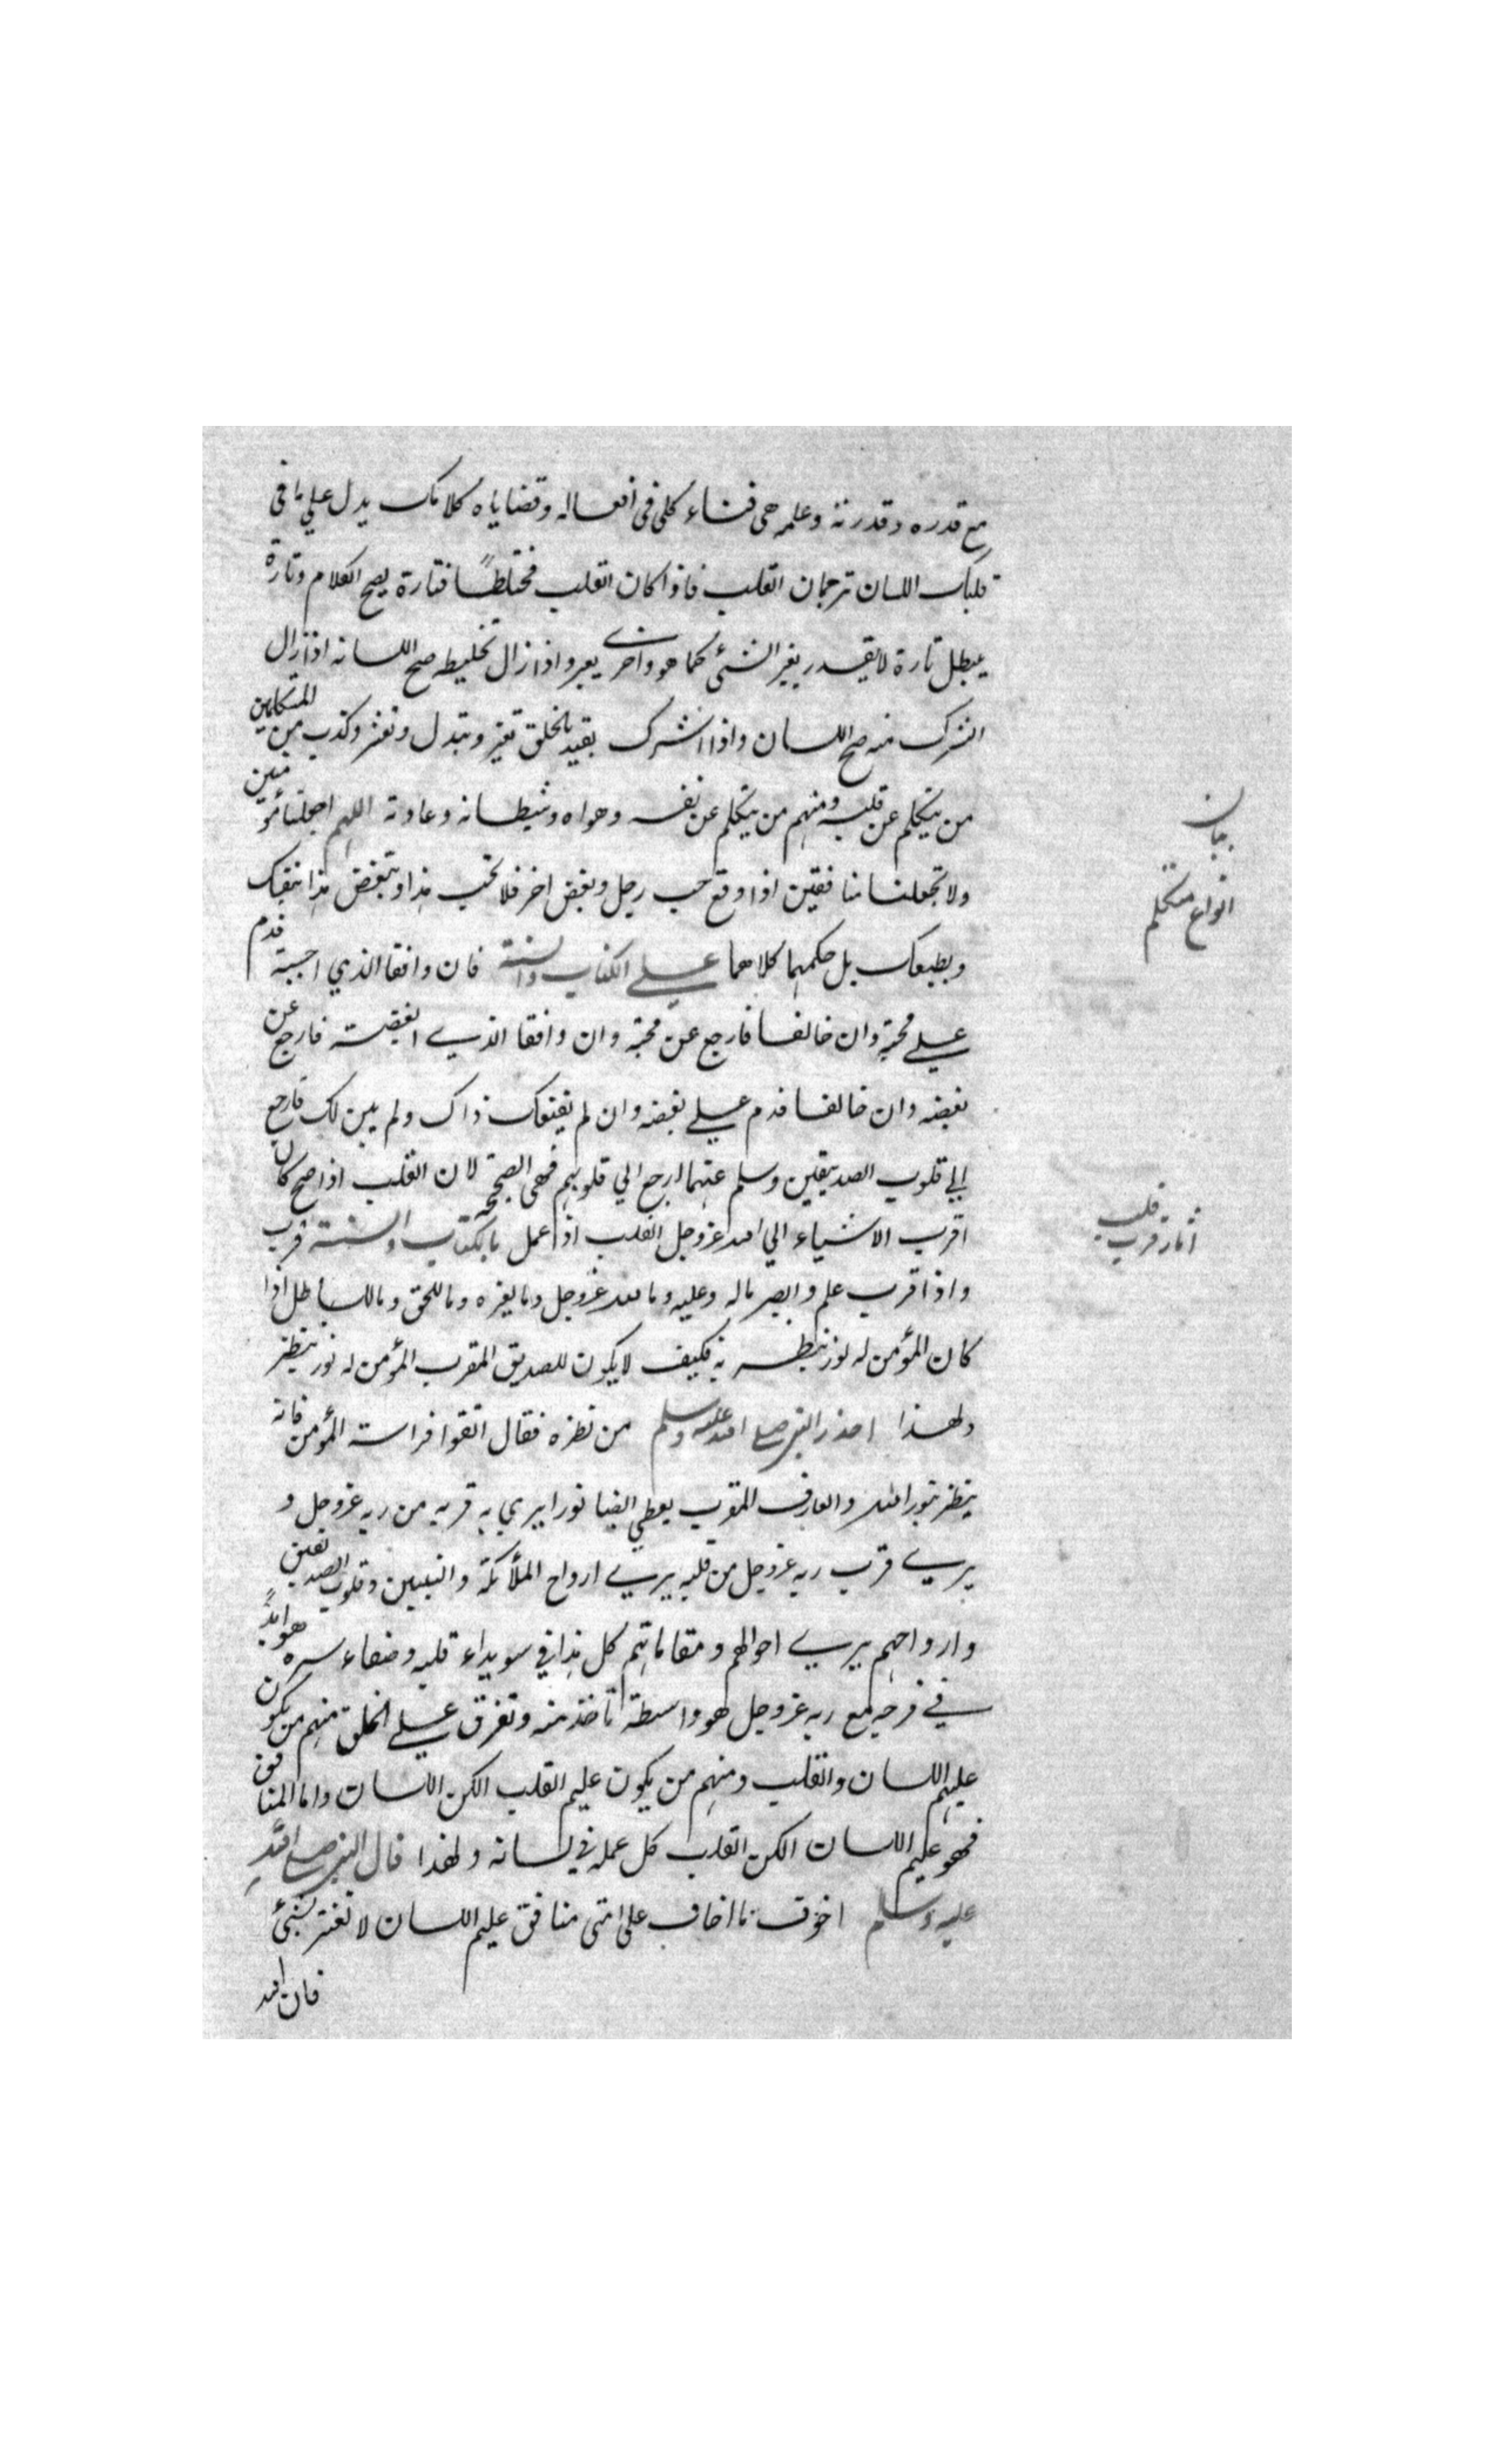 مع قدره وقدرته وعلمه هى فناء كلى فى افعاله وقضاياه كلامك يدل على ما فى
قلبك اللسان ترجمان القلب فاذا كان القلب مختلطًا فتارة يصح الكلام وتارة
يبطل تارة لا يقدر يغير الشئ كما هو واخرى يعبر واذا زال تخليطه صح اللسانه اذا زال
الشرك منه صح اللسان واذا اشرك بقيد بالخلق تغير وتبدل وتعثر وكذب من المتكلمين
من يتكلم عن قلبه ومنهم من يتكلم عن نفسه وهواه وشيطانه وعادته اللهم اجعلنا مؤمنين
ولا تجعلنا منافقين اذا وقع حب رجل وبغض اخر فلا تحب هذا وتبغض هذا بنفسك
وبطبعك بل حكمهما كلاهما على الكتاب والسنة فان وافقا الذي احببته قدم
على محبته وان خالفا فارجع عن محبته وان وافقا الذي ابغضته فارجع عن
بغضه وان خالفا قدم على بغضه وان لم يقنعك ذاك ولم يبين لك فارجع
الى قلوب الصديقين وسلم عنهما ارجع الي قلوبهم فهى الصحيحة لان القلب اذا صح كان
اقرب الاشياء الي الله عز وجل القلب اذا عمل بالكتاب والسنة قرب
واذا قرب علم وابصر ماله وعليه وما لله عز وجل وما لغيره وما للحق وما للباطل اذا
كان المؤمن له نور ينظر به فكيف لا يكون للصديق المقرب المؤمن له نور ينظر
ولهذا احذر النبى صلى الله عليه وسلم من نظره فقال اتقوا فراسة المؤمن فانه
ينظر بنور الله والعارف المقرب يعطي ايضا نورا يري به قربه من ربه عز وجل و
يرى قرب ربه عز وجل من قلبه يرى ارواح الملائكة والنبيين وقلوب الصديقين
وارواحهم يرى احوالهم ومقاماتهم كل هذا في سويداء قلبه وصفاء سره هو ابدًا
في فرحه مع ربه عز وجل هو واسطة تاخذ منه وتفرق على الخلق منهم من يكون
عليم اللسان والقلب ومنهم من يكون عليم القلب الكن اللسان واما المنافق
فهو عليم اللسان الكن القلب كل عمله في لسانه ولهذا قال النبى صلى الله
عليه وسلم اخوف ما اخاف على امتى منافق عليم اللسان لا تغتر بشئ
فان الله
بيان
انواع متكلم
اثار قرب قلب